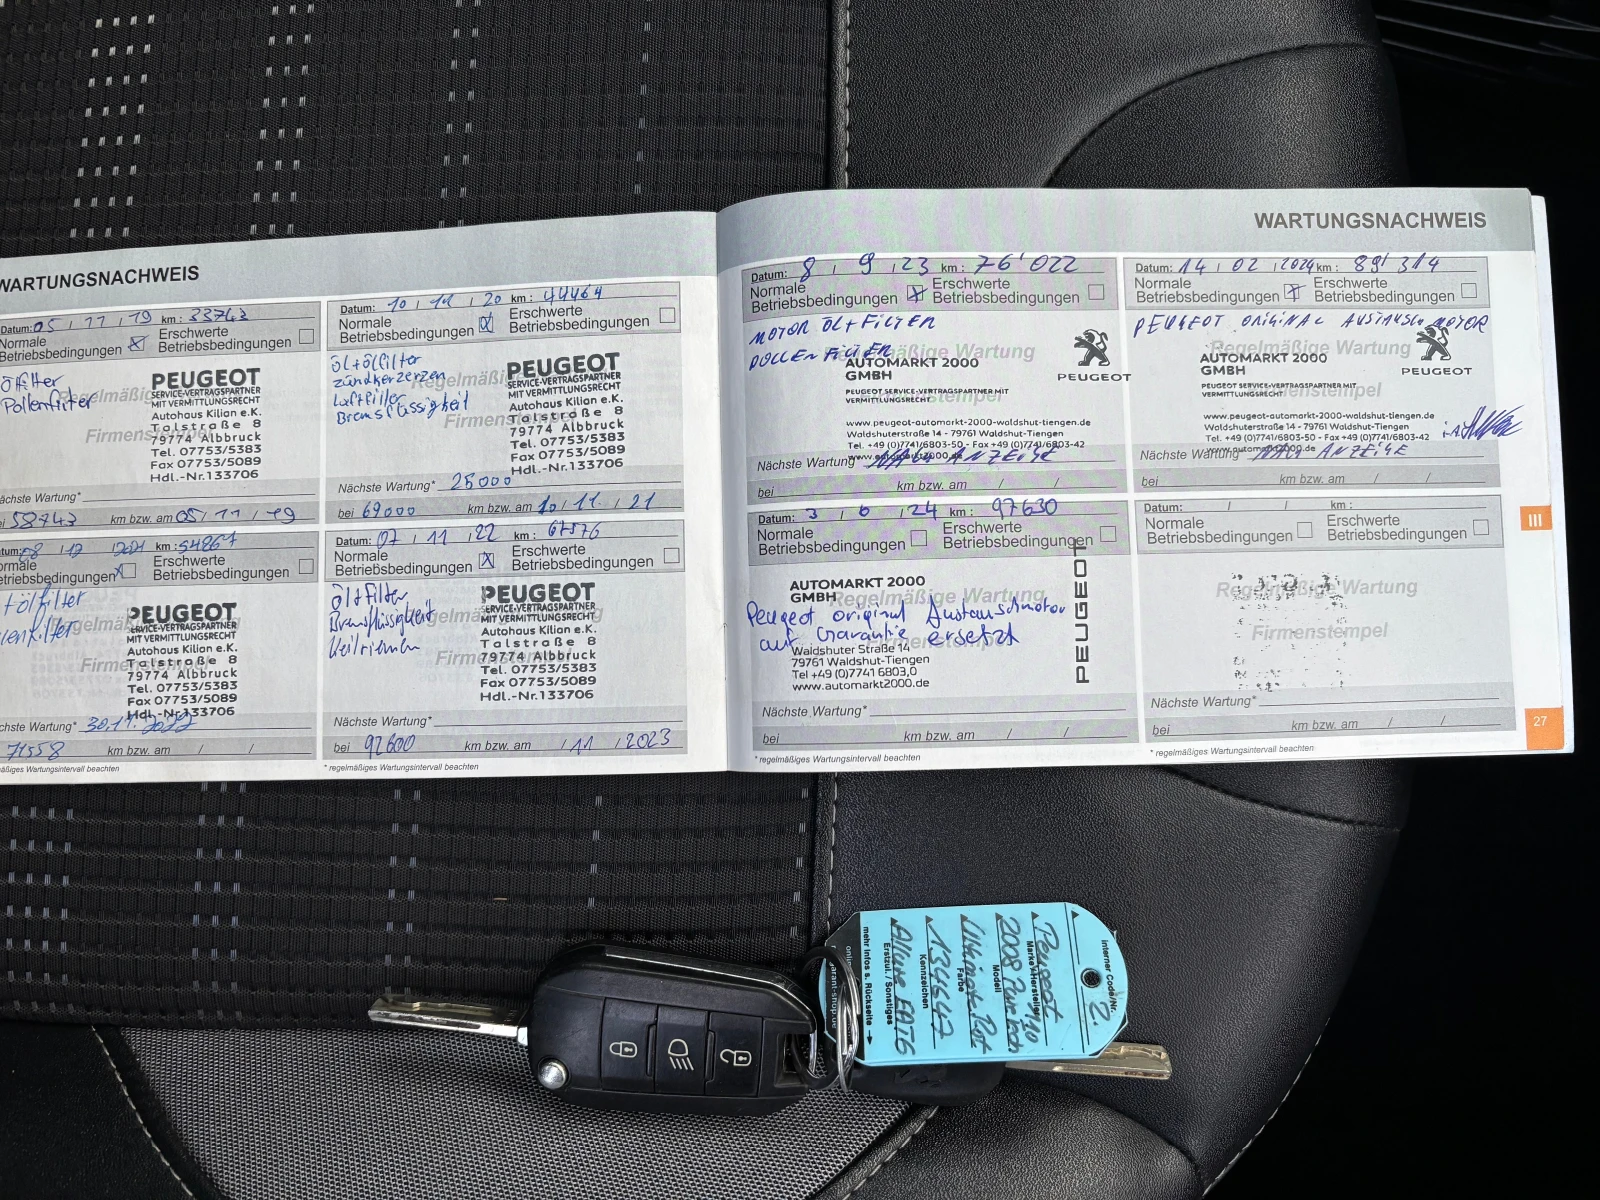 WARTUNGSNACHWEIS
Datum: 05 / 11 / 19 km: 33743
Normale
Betriebsbedingungen
Erschwerte
Betriebsbedingungen
Ölfilter
Pollenfilter
Regelmäßige
Firmenstempel
PEUGEOT
SERVICE-VERTRAGSPARTNER
MIT VERMITTLUNGSRECHT
Autohaus Kilian e.K.
Talstraße 8
79774 Albbruck
Tel. 07753/5383
Fax 07753/5089
Hdl.-Nr.133706
Nächste Wartung*
58743 km bzw. am 05 / 11 / 19
Datum: 10 / 11 / 20 km: 44464
Normale
Betriebsbedingungen
Erschwerte
Betriebsbedingungen
Öl+Ölfilter
Zündkerzerzen
Luftfilter
Bremsflüssigkeit
PEUGEOT
SERVICE-VERTRAGSPARTNER
MIT VERMITTLUNGSRECHT
Autohaus Kilian e.K.
Talstraße 8
79774 Albbruck
Tel. 07753/5383
Fax 07753/5089
Hdl.-Nr.133706
Nächste Wartung* 25000
bei 69000 km bzw. am 10 / 11 / 21
km: 54867
Betriebsbedingungen
Erschwerte
Betriebsbedingungen
ölfilter
PEUGEOT
SERVICE-VERTRAGSPARTNER
MIT VERMITTLUNGSRECHT
Autohaus Kilian e.K.
Talstraße 8
79774 Albbruck
Tel. 07753/5383
Fax 07753/5089
Hdl.-Nr.133706
Wartung* 30.11.2022
71558 km bzw. am / /
Datum: 07 / 11 / 22 km: 67576
Normale
Betriebsbedingungen
Erschwerte
Betriebsbedingungen
Öl+Filter
Bremsflüssigkeit
Keilriemen
PEUGEOT
SERVICE-VERTRAGSPARTNER
MIT VERMITTLUNGSRECHT
Autohaus Kilian e.K.
Talstraße 8
79774 Albbruck
Tel. 07753/5383
Fax 07753/5089
Hdl.-Nr.133706
Nächste Wartung*
bei 92600 km bzw. am / 11 / 2023
* regelmäßiges Wartungsintervall beachten
WARTUNGSNACHWEIS
Datum: 8 / 9 / 23 km: 76'022
Normale
Betriebsbedingungen
Erschwerte
Betriebsbedingungen
MOTOR ÖL + FILTER
POLLENFILTER
Regelmäßige Wartung
AUTOMARKT 2000
GMBH
PEUGEOT SERVICE-VERTRAGSPARTNER MIT
VERMITTLUNGSRECHT
PEUGEOT
www.peugeot-automarkt-2000-waldshut-tiengen.de
Waldshuterstraße 14 - 79761 Waldshut-Tiengen
Tel. +49 (0)7741/6803-50 - Fax +49 (0)7741/6803-42
www.automarkt2000.de
Nächste Wartung NACH ANZEIGE
bei km bzw. am / /
Datum: 14 / 02 / 2024 km: 89'314
Normale
Betriebsbedingungen
Erschwerte
Betriebsbedingungen
PEUGEOT ORIGINAL AUSTAUSCHMOTOR
Regelmäßige Wartung
AUTOMARKT 2000
GMBH
PEUGEOT SERVICE-VERTRAGSPARTNER MIT
VERMITTLUNGSRECHT
PEUGEOT
www.peugeot-automarkt-2000-waldshut-tiengen.de
Waldshuterstraße 14 - 79761 Waldshut-Tiengen
Tel. +49 (0)7741/6803-50 - Fax +49 (0)7741/6803-42
www.automarkt2000.de
Nächste Wartung NACH ANZEIGE
bei km bzw. am / /
Datum: 3 / 6 / 24 km: 97630
Normale
Betriebsbedingungen
Erschwerte
Betriebsbedingungen
AUTOMARKT 2000
GMBH
Regelmäßige Wartung
Peugeot original Austauschmotor
auf Garantie ersetzt
Waldshuter Straße 14
79761 Waldshut-Tiengen
Tel +49 (0)7741 6803,0
www.automarkt2000.de
PEUGEOT
Nächste Wartung*
bei km bzw. am / /
* regelmäßiges Wartungsintervall beachten
Datum: / / km:
Normale
Betriebsbedingungen
Erschwerte
Betriebsbedingungen
Regelmäßige Wartung
Firmenstempel
Nächste Wartung*
bei km bzw. am / /
* regelmäßiges Wartungsintervall beachten
III
27
Interner Code/Nr.
2.
Peugeot
Marke/Hersteller
2008
Modell
Ultimate Rot
Farbe
1341647
Kennzeichen
Allure EAT6
Erstzul./Sonstiges
mehr Infos s. Rückseite